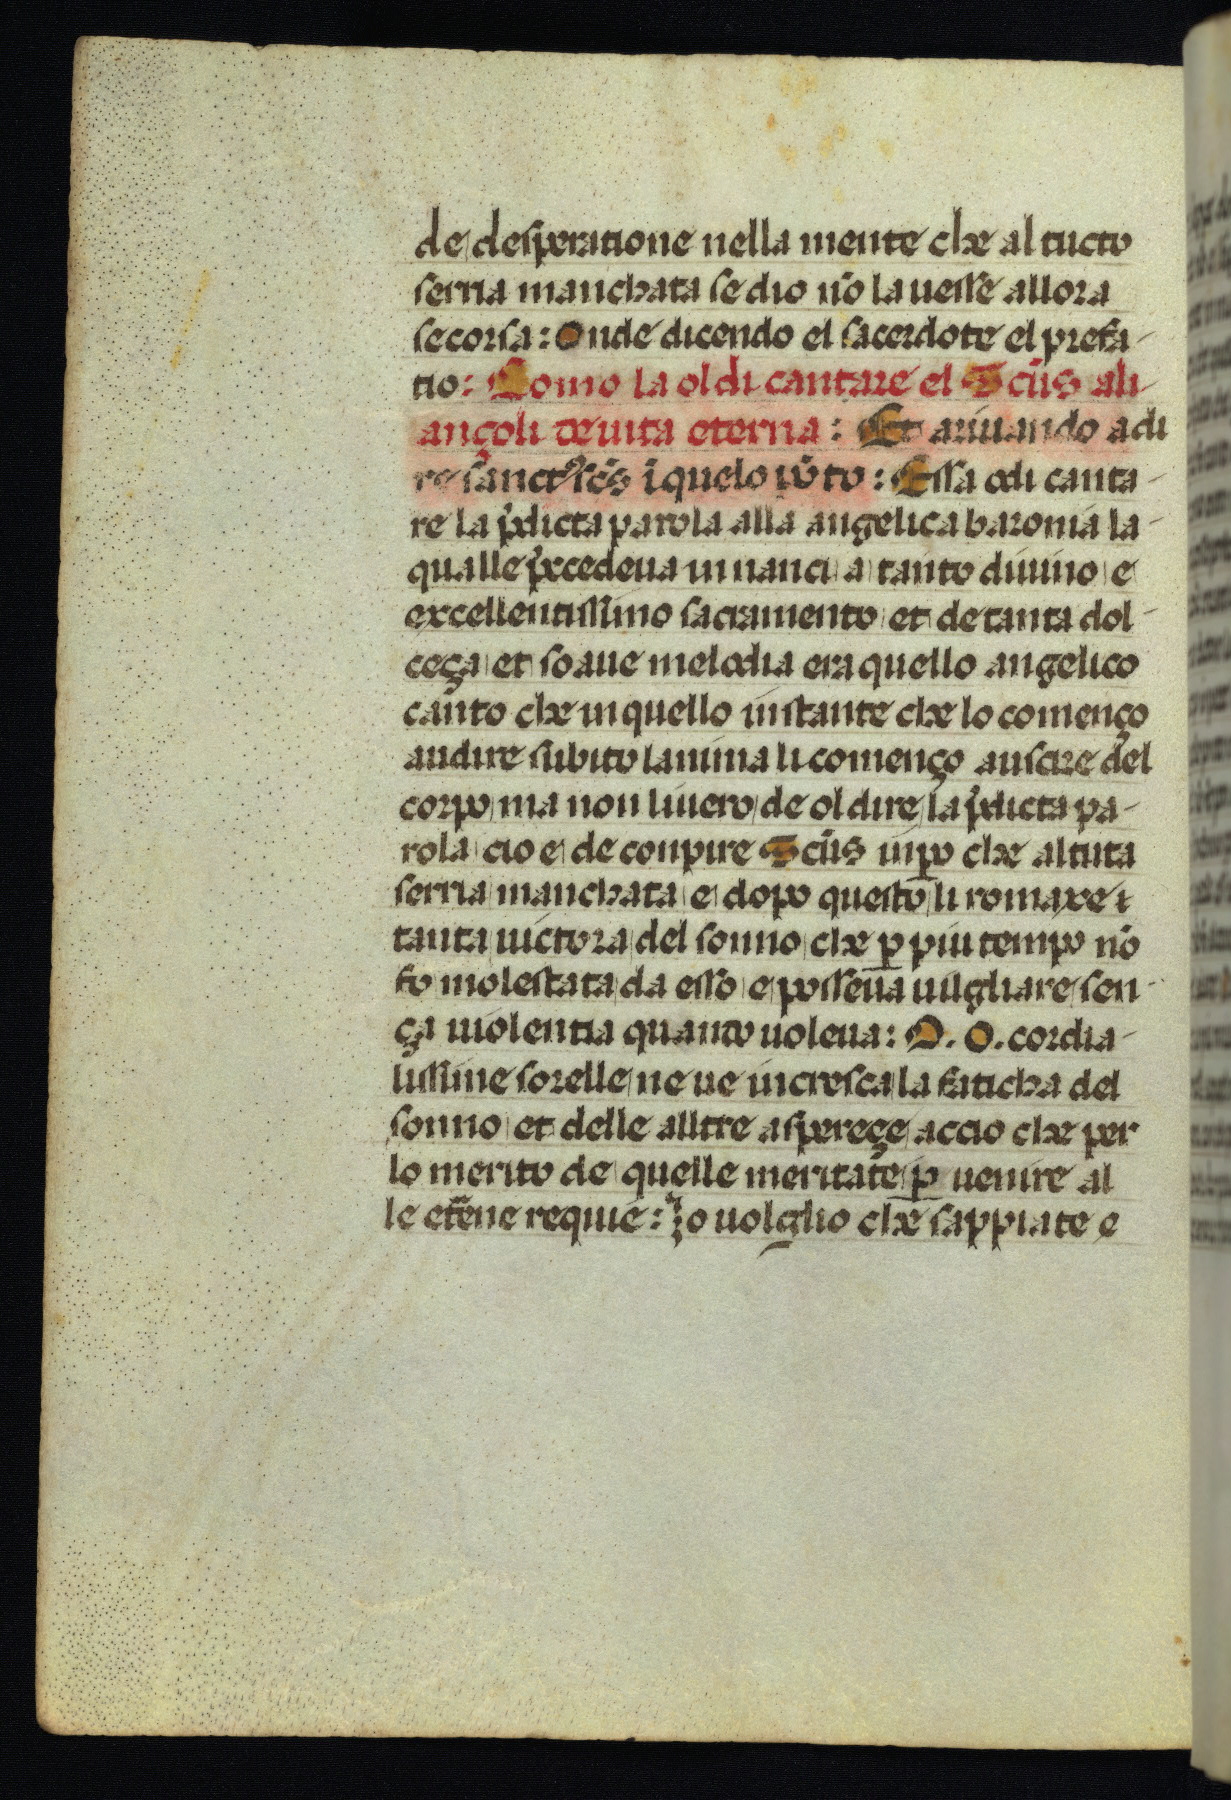 de desperatione nella mente che al tucto
serria manchata se dio nō la uesse allora
secorsa: Onde dicendo el sacerdote el prefa-
tio: Como la oldi cantare el Scūs ali
angoli de uita eterna: Et ariuando a di
re sanctus scūs ī quelo pōto: Essa odi canta-
re la p̄dicta parola alla angelica baronia la-
qualle p̄cedeua innanci a tanto diuino e
excellentissimo sacramento et de tanta dol-
ceça et soaue melodia era quello angelico
canto che in quello instante che lo començo
audire subito lanima li començo a uscire del
corpo ma non liuero de oldire la p̄dicta pa-
rola cio e de conpire Scūs inꝑo che al tuta
serria manchata e dopo questo li romaxe
tanta uictora del sonno che ꝑ piu tempo nō
fo molestata da esso e posseua uigliare sen-
ça uiolentia quanto uoleua: O. O. cordia-
lissime sorelle ne ue incresca la faticha del
sonno et delle alltre aspereçe accio che per
lo merito de quelle meritate ꝑ uenire al
le et̄ene requie: Io uolglio che sappiate e